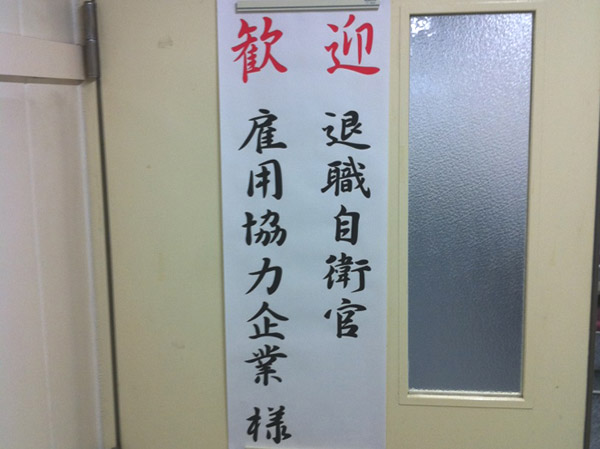 歓迎
退職自衛官
雇用協力企業様